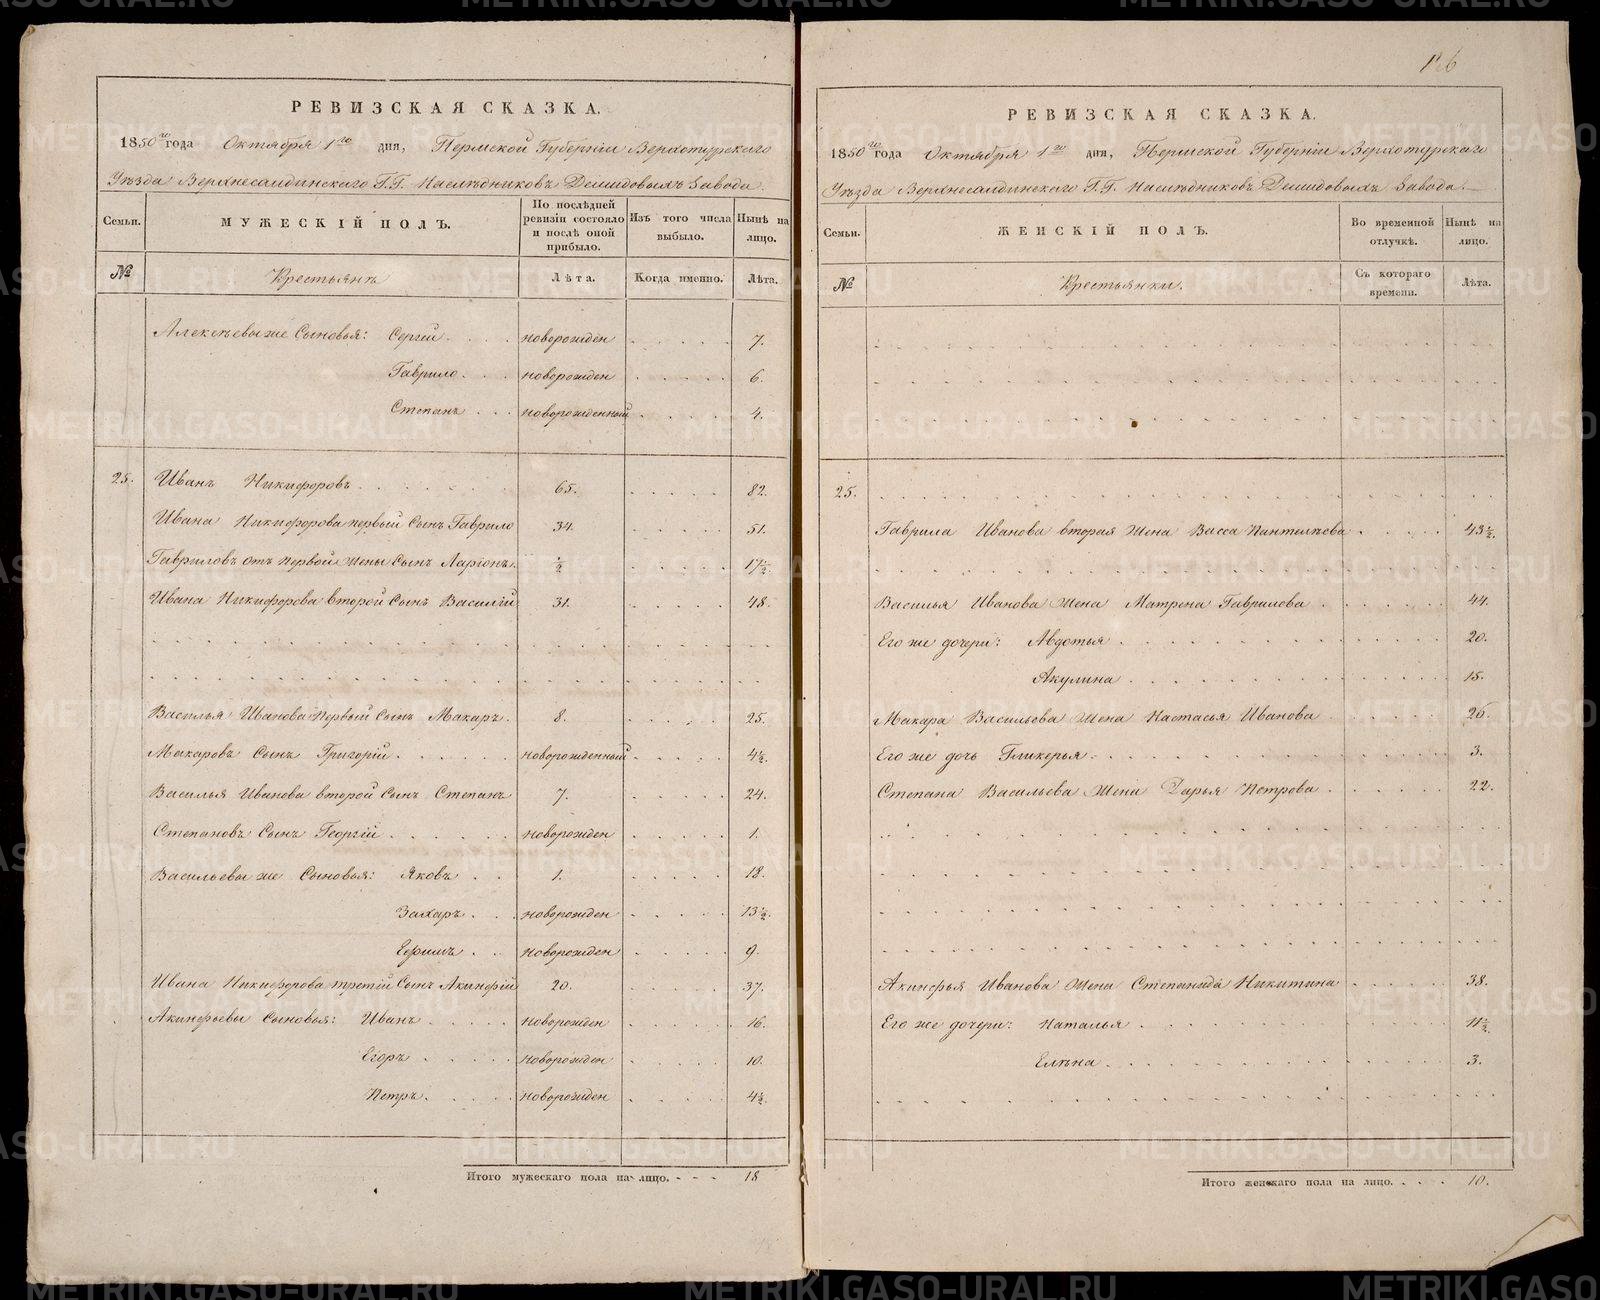 РЕВИЗСКАЯ СКАЗКА.
1850го года Октября 1го дня, Пермской Губерніи Верхотурскаго
Уѣзда Верхнесалдинскаго Г.Г. Наслѣдниковъ Демидовыхъ Завода.
Семьи. МУЖЕСКІЙ ПОЛЪ. По послѣдней ревизіи состояло и послѣ оной прибыло. Изъ того числа выбыло. Нынѣ на лицо.
№ Крестьянъ Лѣта. Когда именно. Лѣта.
Алексѣевы же Сыновья: Сергій новорожден 7.
Гаврило новорожден 6.
Степанъ новорожденный 4.
25. Иванъ Никифоровъ 65. 82.
Ивана Никифорова первый Сынъ Гаврило 34. 51.
Гавриловъ отъ первой жены Сынъ Ларіонъ ½ 17½.
Ивана Никифорова второй Сынъ Василій 31. 48.
Василья Иванова первый Сынъ Макаръ 8. 25.
Макаровъ Сынъ Григорій новорожденный 4½.
Василья Иванова второй Сынъ Степанъ 7. 24.
Степановъ Сынъ Георгій новорожден 1.
Васильевы же Сыновья: Яковъ 1. 18.
Захаръ новорожден 13½.
Ефимъ новорожден 9.
Ивана Никифорова третій Сынъ Акинфій 20. 37.
Акинфьевы Сыновья: Иванъ новорожден 16.
Егоръ новорожден 10.
Петръ новорожден 4½.
Итого мужескаго пола на лицо. 18
126
РЕВИЗСКАЯ СКАЗКА.
1850го года Октября 1го дня, Пермской Губерніи Верхотурскаго
Уѣзда Верхнесалдинскаго Г.Г. Наслѣдниковъ Демидовыхъ Завода.
Семьи. ЖЕНСКІЙ ПОЛЪ. Во временной отлучкѣ. Нынѣ на лицо.
№ Крестьянки. Съ котораго времени. Лѣта.
25.
Гаврила Иванова вторая жена Васса Пантелѣева 43½.
Василья Иванова жена Матрена Гаврилова 44.
Его же дочери: Авдотья 20.
Акулина 15.
Макара Васильева жена Настасья Иванова 26.
Его же дочь Гликерья 3.
Степана Васильева жена Дарья Петрова 22.
Акинфья Иванова жена Степанида Никитина 38.
Его же дочери: Наталья 11½.
Елѣна 3.
Итого женскаго пола на лицо. 10.
METRIKI.GASO-URAL.RU